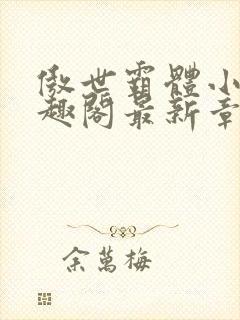 傲世霸體小
趣閣最新章
余萬梅